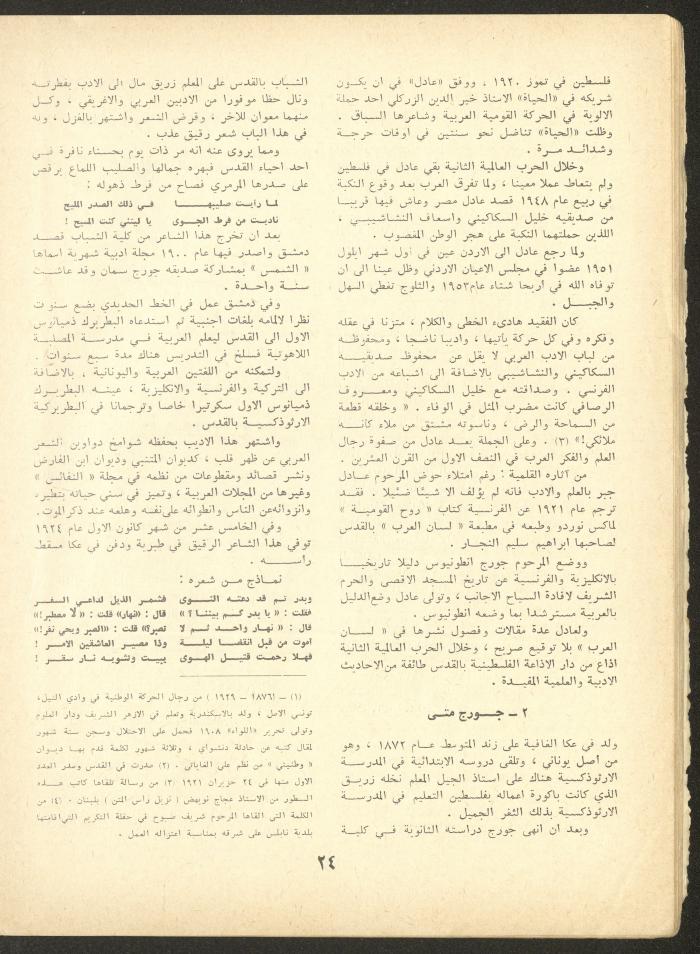 فلسطين في تموز ١٩٢٠ ، ووفق «عادل» في ان يكون
شريكه في «الحياة» الاستاذ خير الدين الزركلي احد حملة
الالوية في الحركة القومية العربية وشاعرها السباق .
وظلت «الحياة» تناضل نحو سنتين في اوقات حرجة
وشدائد مرة .
وخلال الحرب العالمية الثانية بقي عادل في فلسطين
ولم يتعاط عملا معينا ، ولما تفرق العرب بعد وقوع النكبة
في ربيع عام ١٩٤٨ قصد عادل مصر وعاش فيها قريبا
من صديقيه خليل السكاكيني واسعاف النشاشيبي ،
اللذين حملتهما النكبة على هجر الوطن المغصوب .
ولما رجع عادل الى الاردن عين في اول شهر ايلول
١٩٥١ عضوا في مجلس الاعيان الاردني وظل عينا الى ان
توفاه الله في أريحا شتاء عام١٩٥٣ والثلوج تغطي السهل
والجبل .
كان الفقيد هادىء الخطى والكلام ، متزنا في عقله
وفكره وفي كل حركة يأتيها ، واديبا ناضجا ، ومحفوظه
من لباب الادب العربي لا يقل عن محفوظ صديقيه
السكاكيني والنشاشيبي بالاضافة الى اشباعه من الادب
الفرنسي . وصداقته مع خليل السكاكيني ومعروف
الرصافي كانت مضرب المثل في الوفاء . « وخلقه قطعة
من السماحة والرضى ، وناسوته مشتق من ملاء كأنه
ملائكي!» (٣) . وعلى الجملة يعد عادل من صفوة رجال
العلم والفكر العرب في النصف الاول من القرن العشرين .
من آثاره القلمية : رغم امتلاء حوض المرحوم عادل
جبر بالعلم والادب فانه لم يؤلف الا شيئا ضئيلا . فقد
ترجم عام ١٩٢١ عن الفرنسية كتاب « روح القومية »
لماكس نوردو وطبعه في مطبعة « لسان العرب » بالقدس
لصاحبها ابراهيم سليم النجار .
ووضع المرحوم جورج انطونيوس دليلا تاريخيا
بالانكليزية والفرنسية عن تاريخ المسجد الاقصى والحرم
الشريف لافادة السياح الاجانب ، وتولى عادل وضع الدليل
بالعربية مسترشدا بما وضعه انطونيوس .
ولعادل عدة مقالات وفصول نشرها في « لسان
العرب » بلا توقيع صريح ، وخلال الحرب العالمية الثانية
اذاع من دار الاذاعة الفلسطينية بالقدس طائفة من الاحاديث
الادبية والعلمية المفيدة .
٢ ـ جورج متى
ولد في عكا الغافية على زند المتوسط عام ١٨٧٢ ، وهو
من اصل يوناني ، وتلقى دروسه الابتدائية في المدرسة
الارثوذكسية هناك على استاذ الجيل المعلم نخله زريق
الذي كانت باكورة اعماله بفلسطين التعليم في المدرسة
الارثوذكسية بذلك الثغر الجميل .
وبعد ان انهى جورج دراسته الثانوية في كلية
الشباب بالقدس على المعلم زريق مال الى الادب بفطرته
ونال حظا موفورا من الادبين العربي والاغريقي ، وكل
منهما معوان للآخر ، وقرض الشعر واشتهر بالغزل ، وله
في هذا الباب شعر رقيق عذب .
ومما يروى عنه انه مر ذات يوم بحسناء نافرة في
احد احياء القدس فبهره جمالها والصليب اللماع يرقص
على صدرها المرمري فصاح من فرط ذهوله :
لما رأيت صليبها في ذلك الصدر المليح
ناديت من فرط الجوى يا ليتني كنت المسيح !
بعد ان تخرج هذا الشاعر من كلية الشباب قصد
دمشق واصدر فيها عام ١٩٠٠ مجلة ادبية شهرية اسماها
« الشمس » بمشاركة صديقه جورج سمان وقد عاشت
سنة واحدة .
وفي دمشق عمل في الخط الحديدي بضع سنوات
نظرا لالمامه بلغات اجنبية ثم استدعاه البطريرك ذميانوس
الاول الى القدس ليعلم العربية في مدرسة المصلبة
اللاهوتية فسلخ في التدريس هناك مدة سبع سنوات .
ولتمكنه من اللغتين العربية واليونانية ، بالاضافة
الى التركية والفرنسية والانكليزية ، عينه البطريرك
ذميانوس الاول سكرتيرا خاصا وترجمانا في البطريركية
الارثوذكسية بالقدس .
واشتهر هذا الاديب بحفظه شوامخ دواوين الشعر
العربي عن ظهر قلب ، كديوان المتنبي وديوان ابن الفارض
ونشر قصائد ومقطوعات من نظمه في مجلة « النفائس »
وغيرها من المجلات العربية ، وتميز في سني حياته بتطيره
وانزوائه عن الناس وانطوائه على نفسه وهلعه عند ذكر الموت.
وفي الخامس عشر من شهر كانون الاول عام ١٩٢٤
توفي هذا الشاعر الرقيق في طبرية ودفن في عكا مسقط
رأسه .
نماذج من شعره :
وبدر تم قد دعته النوى فشمر الذيل لداعي السفر
فقلت : « يا بدر كم بيننا ؟ » قال : «نهار» قلت : « لا مصطبر!»
قال : « نهار واحد لم لا تصبر؟» قلت : «الصبر ويحي نفر!»
اموت من قبل انقضا ليلة وذا مصير العاشقين الامر !
فهلا رحمت قتيل الهوى يبيت وتشويه نار سقر !
(١) ـ (١٨٧٦ ـ ١٩٢٩ ) من رجال الحركة الوطنية في وادي النيل،
تونسي الاصل ، ولد بالاسكندرية وتعلم في الازهر الشريف ودار العلوم
وتولى تحرير «اللواء» ١٩٠٨ فحمل على الاحتلال وسجن ستة شهور
لمقال كتبه عن حادثة دنشواي ، وثلاثة شهور لكلمة قدم بها ديوان
« وطنيتي » من نظم علي الغاياتي . (٢) صدرت في القدس وصدر العدد
الاول منها في ٢٤ حزيران ١٩٢١ (٣) من رسالة تلقاها كاتب هذه
السطور من الاستاذ عجاج نويهض ( نزيل رأس المتن ) بلبنان . (٤) من
الكلمة التي القاها المرحوم شريف صبوح في حفلة التكريم التي اقامتها
بلدية نابلس على شرفه بمناسبة اعتزاله العمل .
٢٤